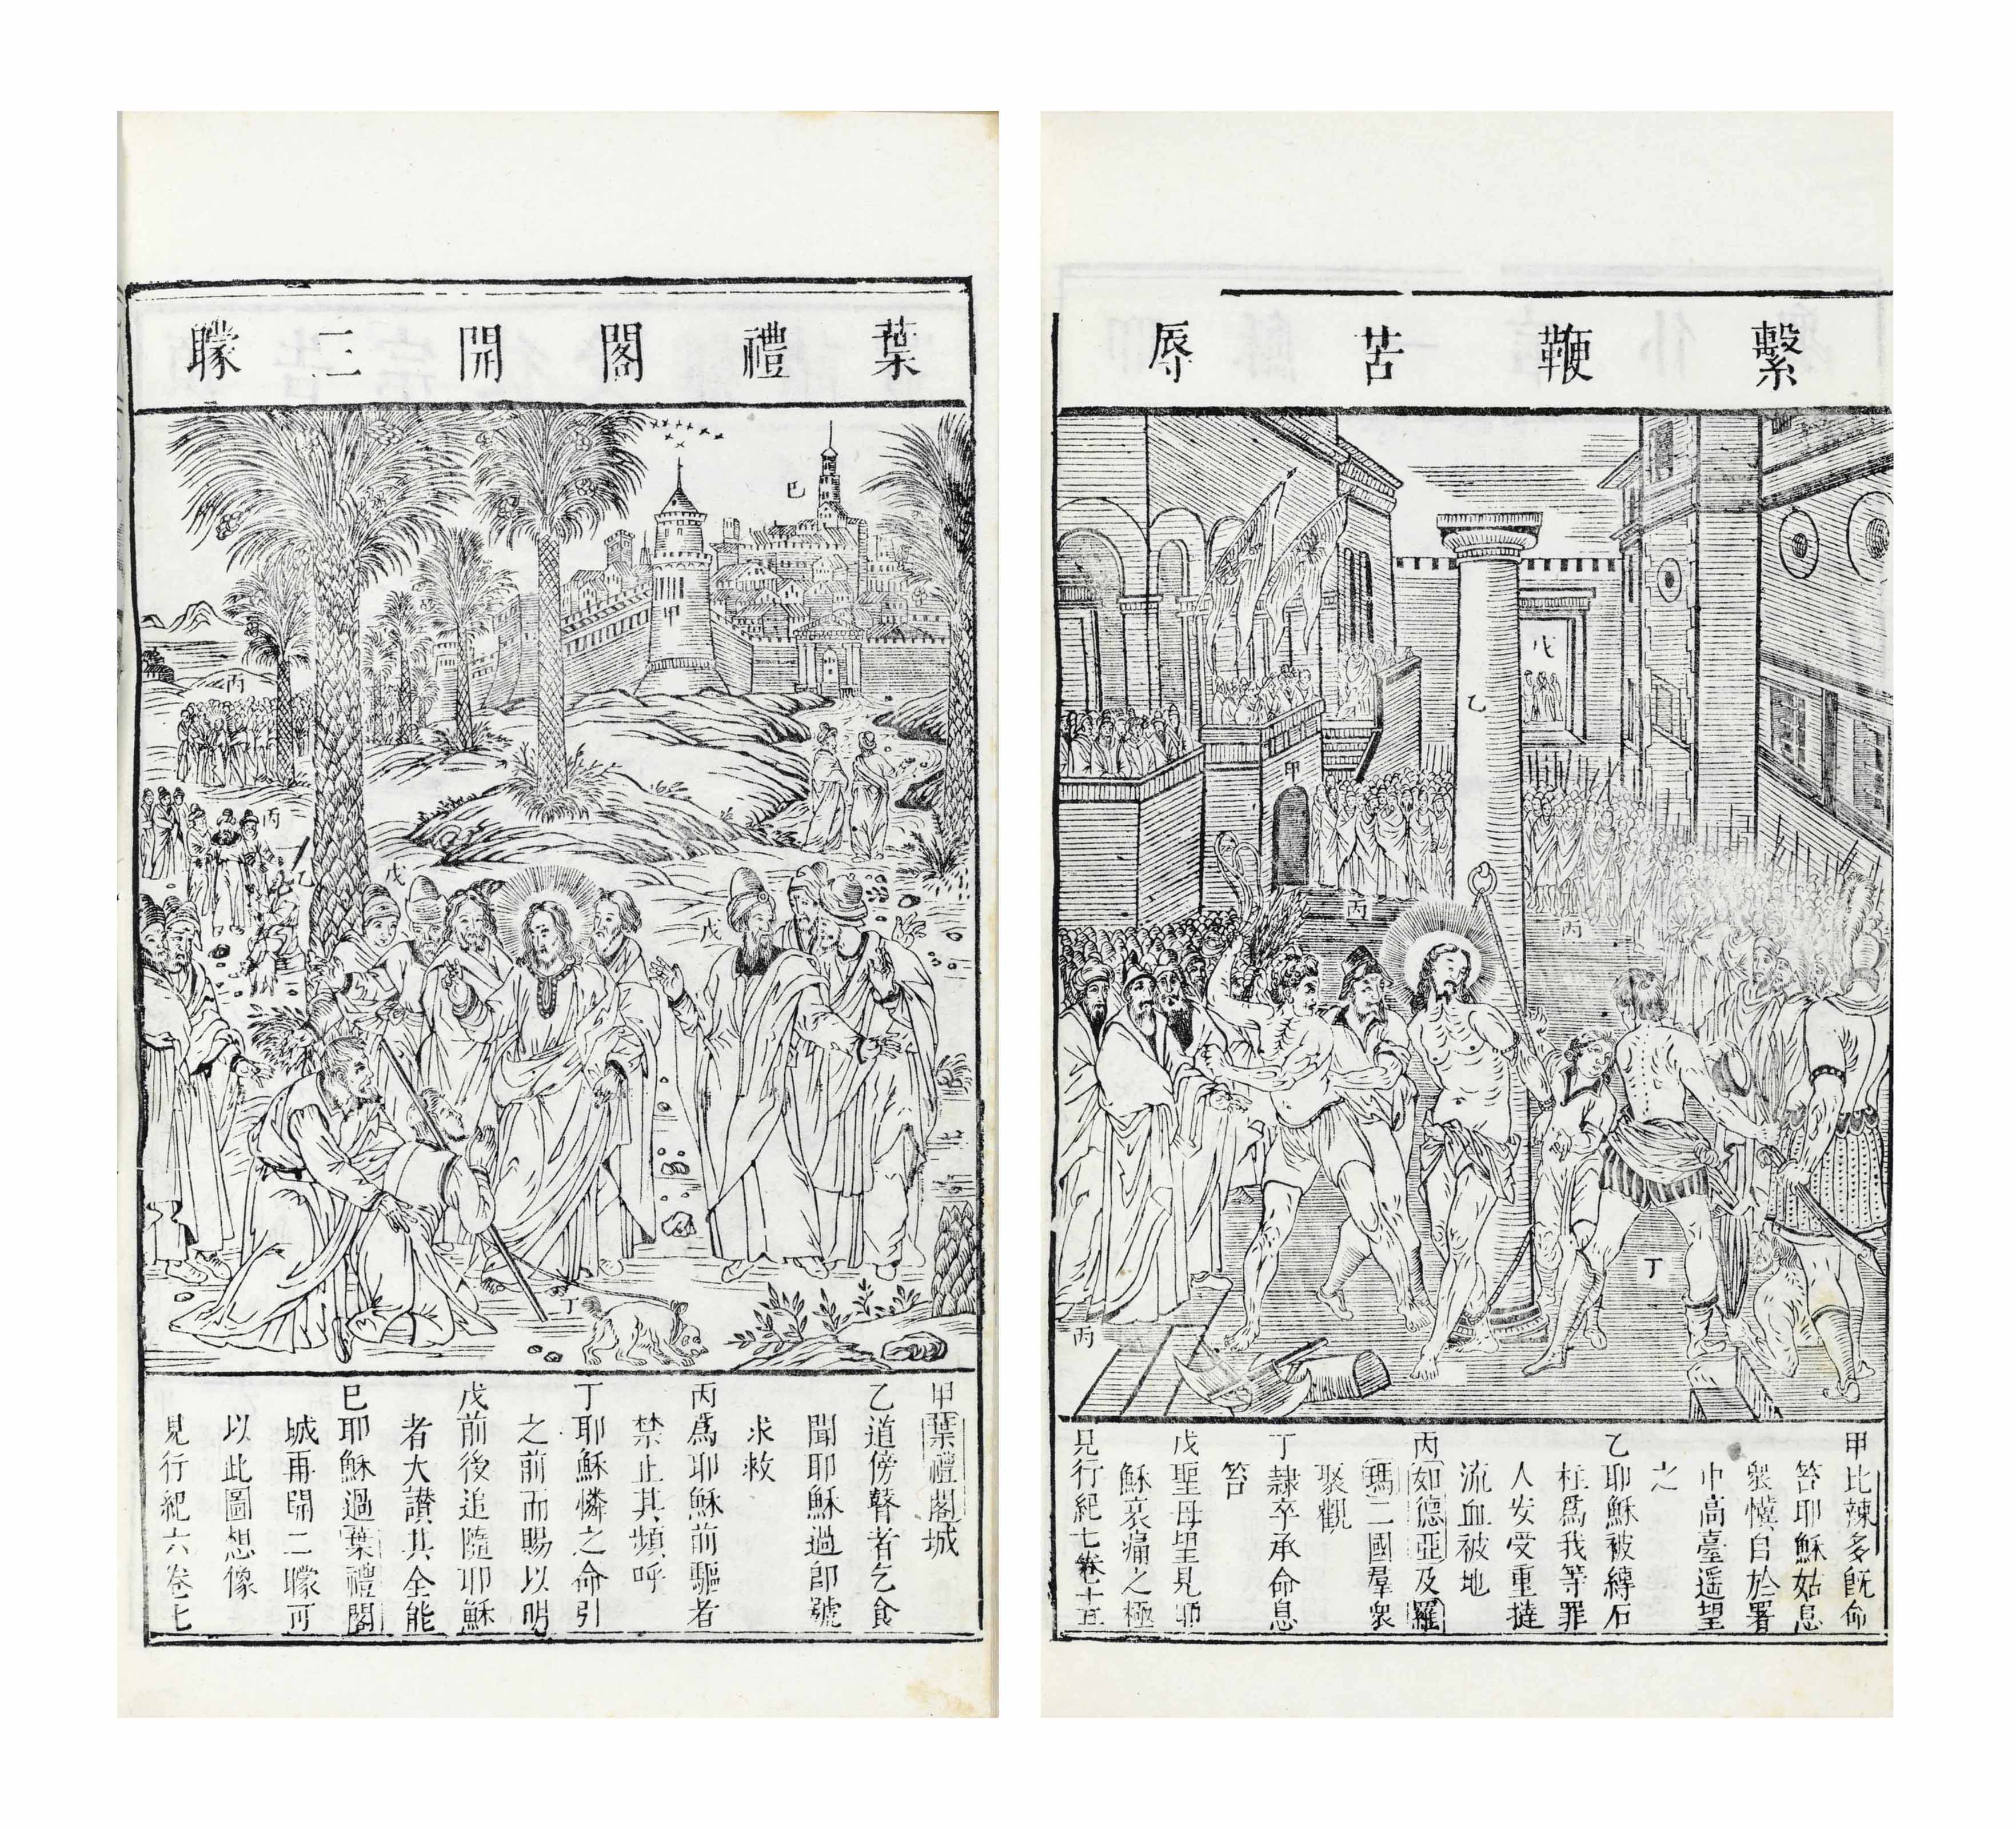 葉禮閣開三矇
巳
丙
丙
乙
戊
戊
丁
甲葉禮閣城
乙道傍瞽者乞食
聞耶穌過卽號
求救
丙爲耶穌前驅者
禁止其頻呼
丁耶穌憐之命引
之前而賜以明
戊前後追隨耶穌
者大讃其全能
巳耶穌過葉禮閣
城再開二矇可
以此圖想像
見行紀六卷七
繫鞭苦辱
戊
乙
甲
丙
丙
丁
丙
甲比辣多旣命
笞耶穌姑息
衆憤自於署
中高臺遥望
之
乙耶穌被縛石
柱爲我等罪
人安受重撻
流血被地
丙如德亞及羅
瑪二國羣衆
聚觀
丁隷卒承命息
笞
戊聖母望見耶
穌哀痛之極
見行紀七卷十五